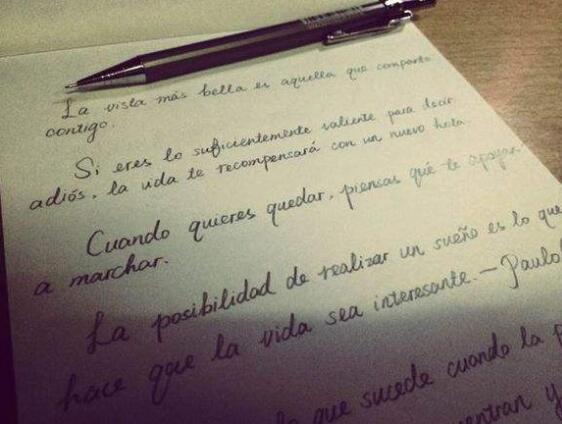 La vista más bella es aquella que comparto
contigo.
Si eres lo suficientemente valiente para decir
adiós, la vida te recompensará con un nuevo hola.
Cuando quieres quedar, piensas qué te apoyan
a marchar.
La posibilidad de realizar un sueño es lo que
hace que la vida sea interesante. — Paulo
que sucede cuando la